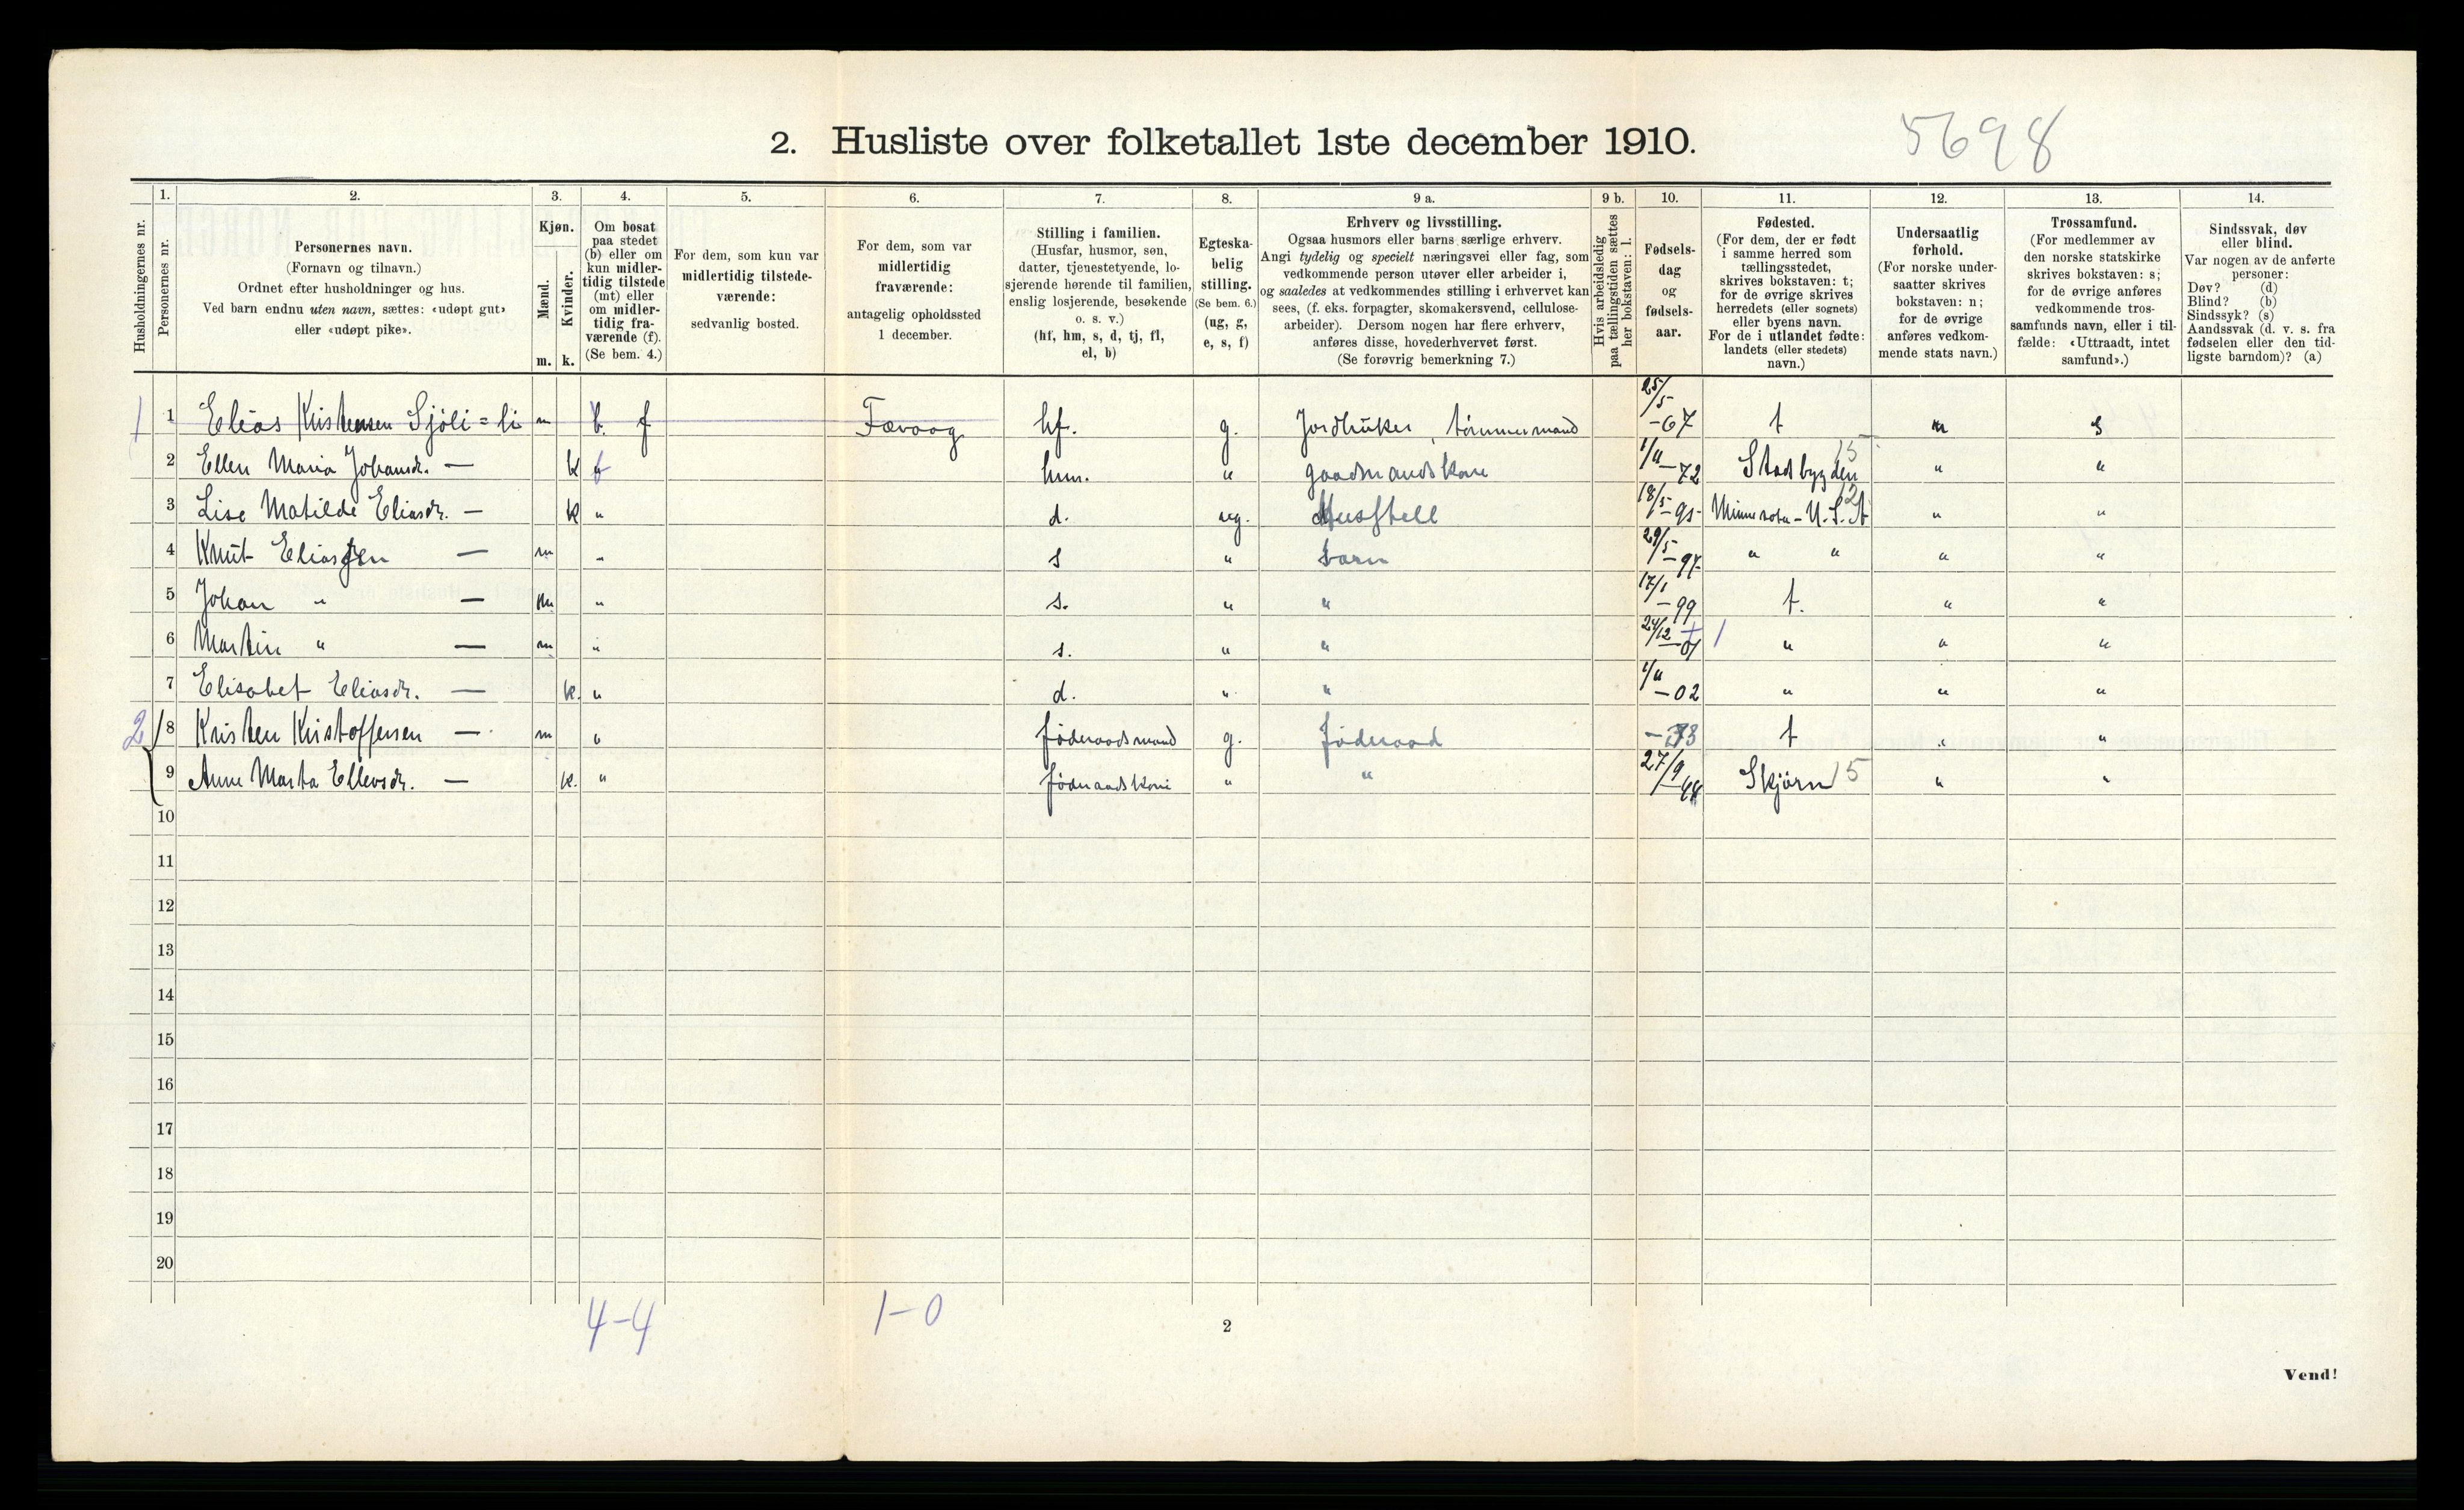 2. Husliste over folketallet 1ste december 1910.
5698
Husholdningernes nr.
1.
Personernes nr.
2.
Personernes navn.
(Fornavn og tilnavn.)
Ordnet efter husholdninger og hus.
Ved barn endnu uten navn, sættes: «udøpt gut»
eller «udøpt pike».
3.
Kjøn.
Mænd.
m.
Kvinder.
k.
4.
Om bosat
paa stedet
(b) eller om
kun midler-
tidig tilstede
(mt) eller
om midler-
tidig fra-
værende (f).
(Se bem. 4.)
5.
For dem, som kun var
midlertidig tilstede-
værende:
sedvanlig bosted.
6.
For dem, som var
midlertidig
fraværende:
antagelig opholdssted
1 december.
7.
Stilling i familien.
(Husfar, husmor, søn,
datter, tjenestetyende, lo-
sjerende hørende til familien,
enslig losjerende, besøkende
o. s. v.)
(hf, hm, s, d, tj, fl,
el, b)
8.
Egteska-
belig
stilling.
(Se bem. 6.)
(ug, g,
e, s, f)
9 a.
Erhverv og livsstilling.
Ogsaa husmors eller barns særlige erhverv.
Angi tydelig og specielt næringsvei eller fag, som
vedkommende person utøver eller arbeider i,
og saaledes at vedkommendes stilling i erhvervet kan
sees, (f. eks. forpagter, skomakersvend, cellulose-
arbeider). Dersom nogen har flere erhverv,
anføres disse, hovederhvervet først.
(Se forøvrig bemerkning 7.)
9 b.
Hvis arbeidsledig
paa tællingstiden sættes
her bokstaven: l.
10.
Fødsels-
dag
og
fødsels-
aar.
11.
Fødested.
(For dem, der er født
i samme herred som
tællingsstedet,
skrives bokstaven: t;
for de øvrige skrives
herredets (eller sognets)
eller byens navn.
For de i utlandet fødte:
landets (eller stedets)
navn.)
12.
Undersaatlig
forhold.
(For norske under-
saatter skrives
bokstaven: n;
for de øvrige
anføres vedkom-
mende stats navn.)
13.
Trossamfund.
(For medlemmer av
den norske statskirke
skrives bokstaven: s;
for de øvrige anføres
vedkommende tros-
samfunds navn, eller i til-
fælde: «Uttraadt, intet
samfund».)
14.
Sindssvak, døv
eller blind.
Var nogen av de anførte
personer:
Døv? (d)
Blind? (b)
Sindssyk? (s)
Aandssvak (d. v. s. fra
fødselen eller den tid-
ligste barndom)? (a)
1 1 Elias Kristensen Sjöli=li m b. f Fævaag hf. g. Jordbruker, tømmermand 25/5-67 t n s
2 Ellen Maria Johansdr. — k b hm. " gaardmandskone 1/11-72 Stadsbygden 15 " "
3 Lise Matilde Eliasdr. — k " d. ug. Husstell 18/5-95 Minnesota-U.S.A " "
4 Knut Eliassen — m " s " barn 29/5-97 " " " "
5 Johan " — m " s. " " 17/1-99 t. " "
6 Martin " — m " s. " " 24/12-01 1 " " "
7 Elisabet Eliasdr. — k. " d. " " 1/11-02 " " "
2 8 Kristen Kristoffersen — m b føderaadsmand g. føderaad t " "
9 Anne Marta Ellevsdr. — k. " føderaadskone " " 27/9-44 Skjørn 15 " "
10
11
12
13
14
15
16
17
18
19
20
4-4
1-0
2
Vend!